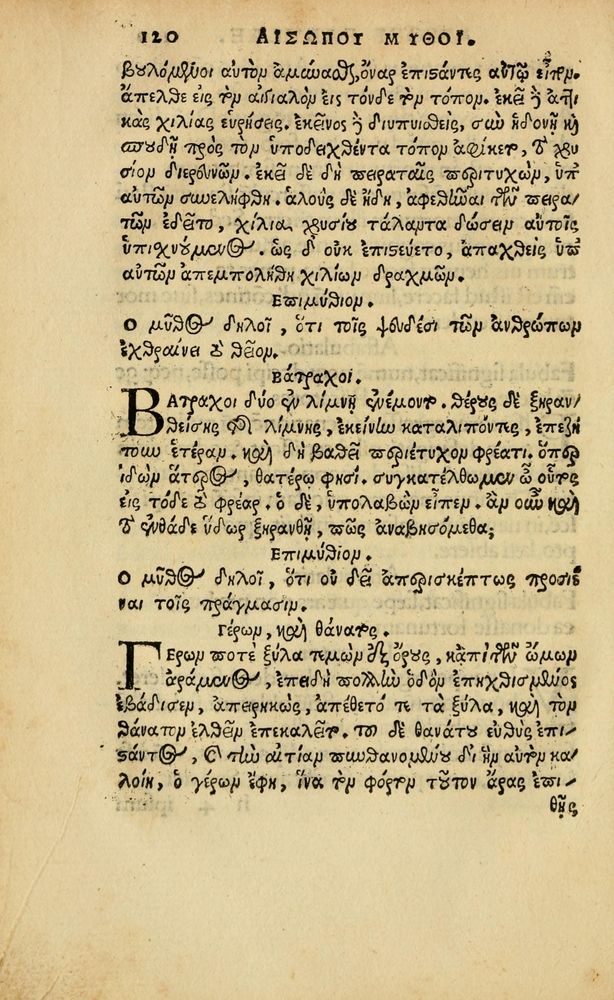 120 ΑΙΣΩΠΟΥ ΜΥΘΟΙ.
βουλόμενοι αὐτὸν ἀμύναθαι, ὄναρ ἐπιστάντες αὐτῷ εἶπον.
ἄπελθε εἰς τὸν αἰγιαλὸν εἰς τόνδε τὸν τόπον. ἐκεῖ γὰρ ἀττι
κὰς χιλίας εὑρήσεις. ἐκεῖνος δὲ διυπνισθεὶς, σὺν ἡδονῇ καὶ
σπουδῇ πρὸς τὸν ὑποδειχθέντα τόπον ἀφίκετο, τὸ χρυ
σίον διερευνῶν. ἐκεῖ δὲ δὴ πειραταῖς περιτυχὼν, ὑπ'
αὐτῶν συνελήφθη. ἁλοὺς δὲ ἤδη, ἀφεθῆναι τῶν πειρα-
τῶν ἐδεῖτο, χίλια χρυσίου τάλαντα δώσειν αὐτοῖς
ὑπισχνούμενος. ὡς δ' οὐκ ἐπιστεύετο, ἀπαχθεὶς ὑπ'
αὐτῶν ἀπεμπολήθη χιλίων δραχμῶν.
Επιμύθιον.
Ο μῦθος δηλοῖ, ὅτι τοῖς ψευδέσι τῶν ἀνθρώπων
ἐχθραίνει τὸ θεῖον.
Βάτραχοι.
ΒΑτραχοι δύο ἐν λίμνῃ ἐνέμοντο. θέρους δὲ ξηραν-
θείσης τῆς λίμνης, ἐκείνην καταλιπόντες, ἐπεζή
τουν ἑτέραν. καὶ δὴ βαθεῖ περιέτυχον φρέατι. ὅπερ
ἰδὼν ἅτερος, θατέρῳ φησί. συγκατέλθωμεν ὦ οὗτος
εἰς τόδε τὸ φρέαρ. ὁ δὲ, ὑπολαβὼν εἶπεν. ἂν οὖν καὶ
τὸ ἐνθάδε ὕδωρ ξηρανθῇ, πῶς ἀναβησόμεθα;
Επιμύθιον.
Ο μῦθος δηλοῖ, ὅτι οὐ δεῖ ἀπερισκέπτως προσιέ
ναι τοῖς πράγμασιν.
Γέρων, καὶ θάνατος.
ΓΕρων ποτὲ ξύλα τεμὼν ἐξ ὄρους, κἀπὶ τῶν ὤμων
ἀράμενος, ἐπειδὴ πολλὴν ὁδὸν ἐπηχθισμένος
ἐβάδισεν, ἀπειρηκὼς, ἀπέθετό τε τὰ ξύλα, καὶ τὸν
θάνατον ἐλθεῖν ἐπεκαλεῖτο. τοῦ δὲ θανάτου εὐθὺς ἐπι-
στάντος, καὶ τὴν αἰτίαν πυνθανομένου δι' ἣν αὐτὸν κα-
λοίη, ὁ γέρων ἔφη, ἵνα τὸν φόρτον τοῦτον ἄρας ἐπι-
θῇς